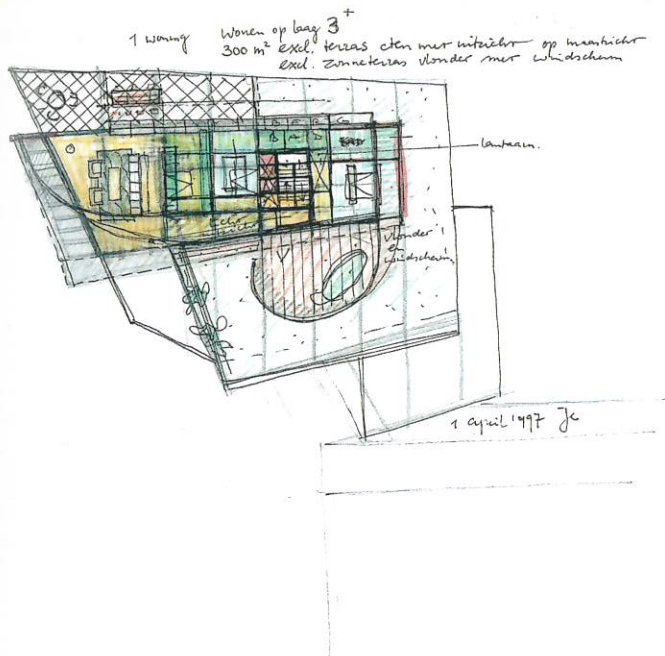 1 woning wonen op laag 3+
300 m² excl. terras eten met uitzicht op maastricht
excl. zonneterras vlonder met windscherm
lantaarn.
vlonder
en
windscherm
1 april 1997